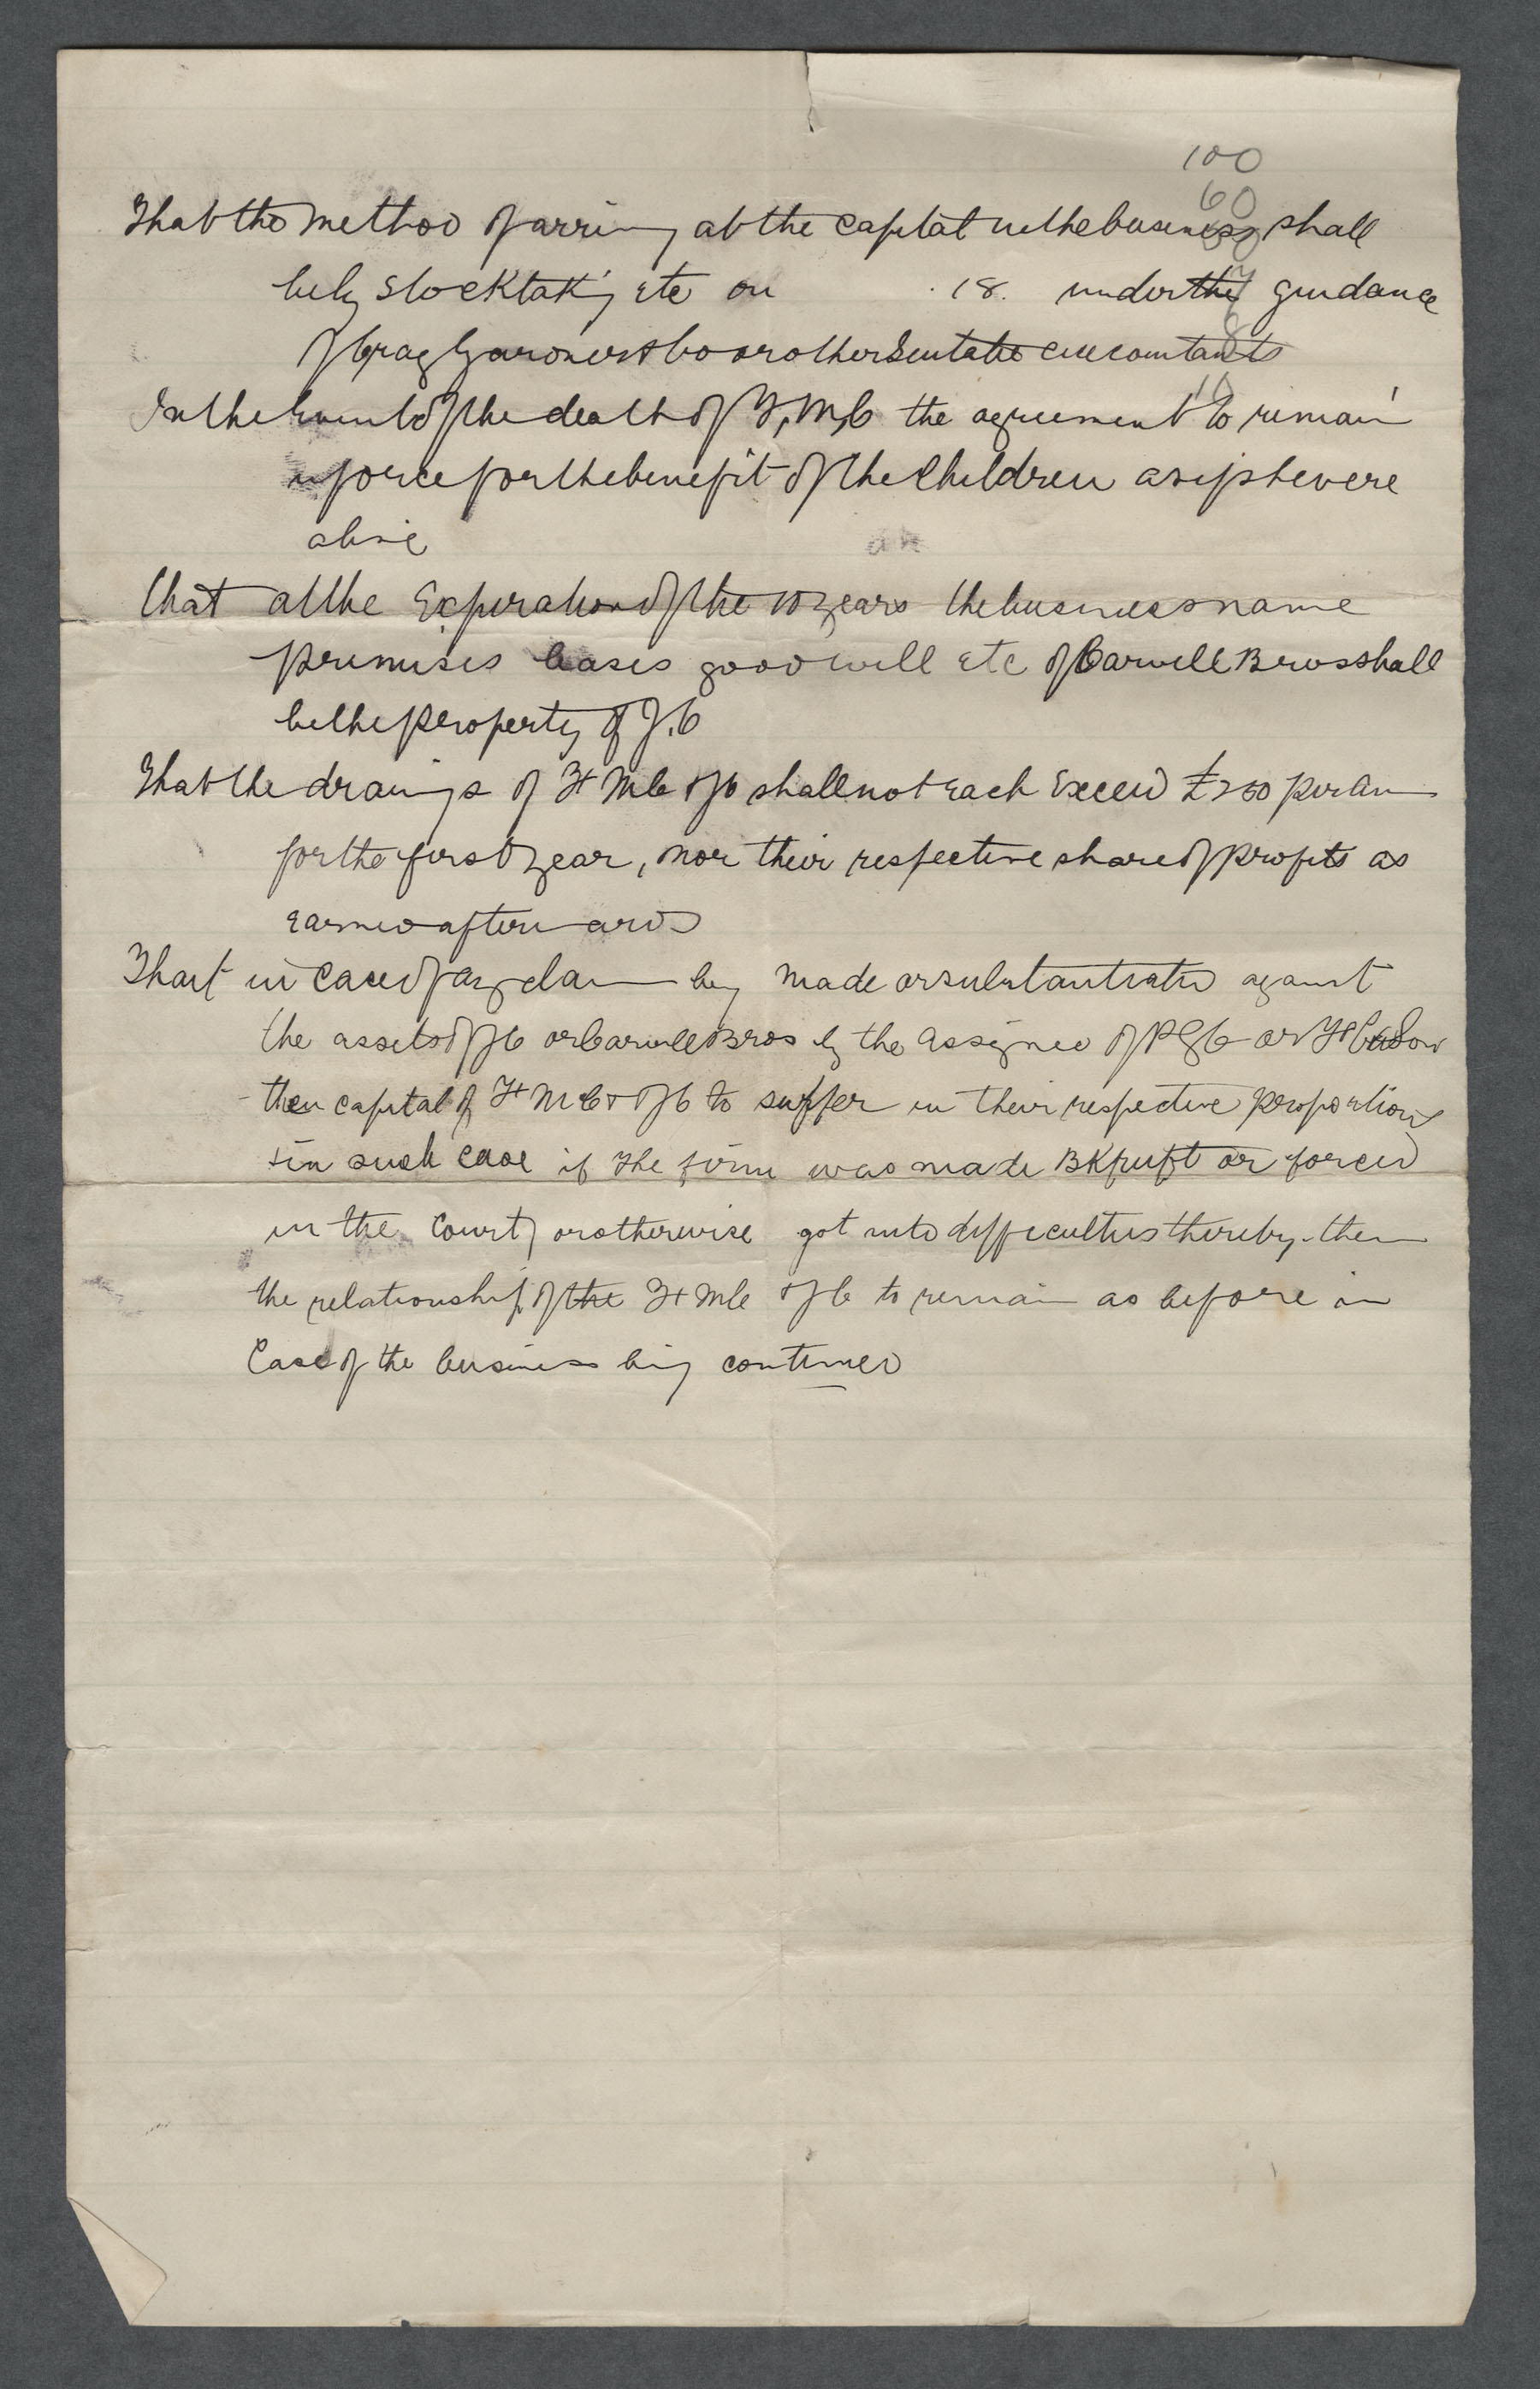 100
60
That the method of arriving at the capital in the business shall
be by stocktaking etc on 18. under the guidance
of Craig Gardner & Co or other suitable accountants
In the Event of the death of H, M, C the agreement to remain
in force for the benefit of the Children as if she were
alive
an
that at the Expiration of the 10 years the business name
premises leases goodwill etc of Carvill Bros shall
be the property of J. C
That the drawings of H M C & J C shall not Each Exceed £250 per an
for the first year, nor their respective share of profits as
Earned afterwards
That in Case of any claim being made or substantiated against
the assets of J C or Carvill Bros by the assignee of P G C or
then capital of H M C & J C to suffer in their respective proportions
& in such case if the firm was made BKrupt or forced
in the Court, or otherwise got into difficulties thereby. then
the relationship of the H M C & J C to remain as before in
Case of the business being continued